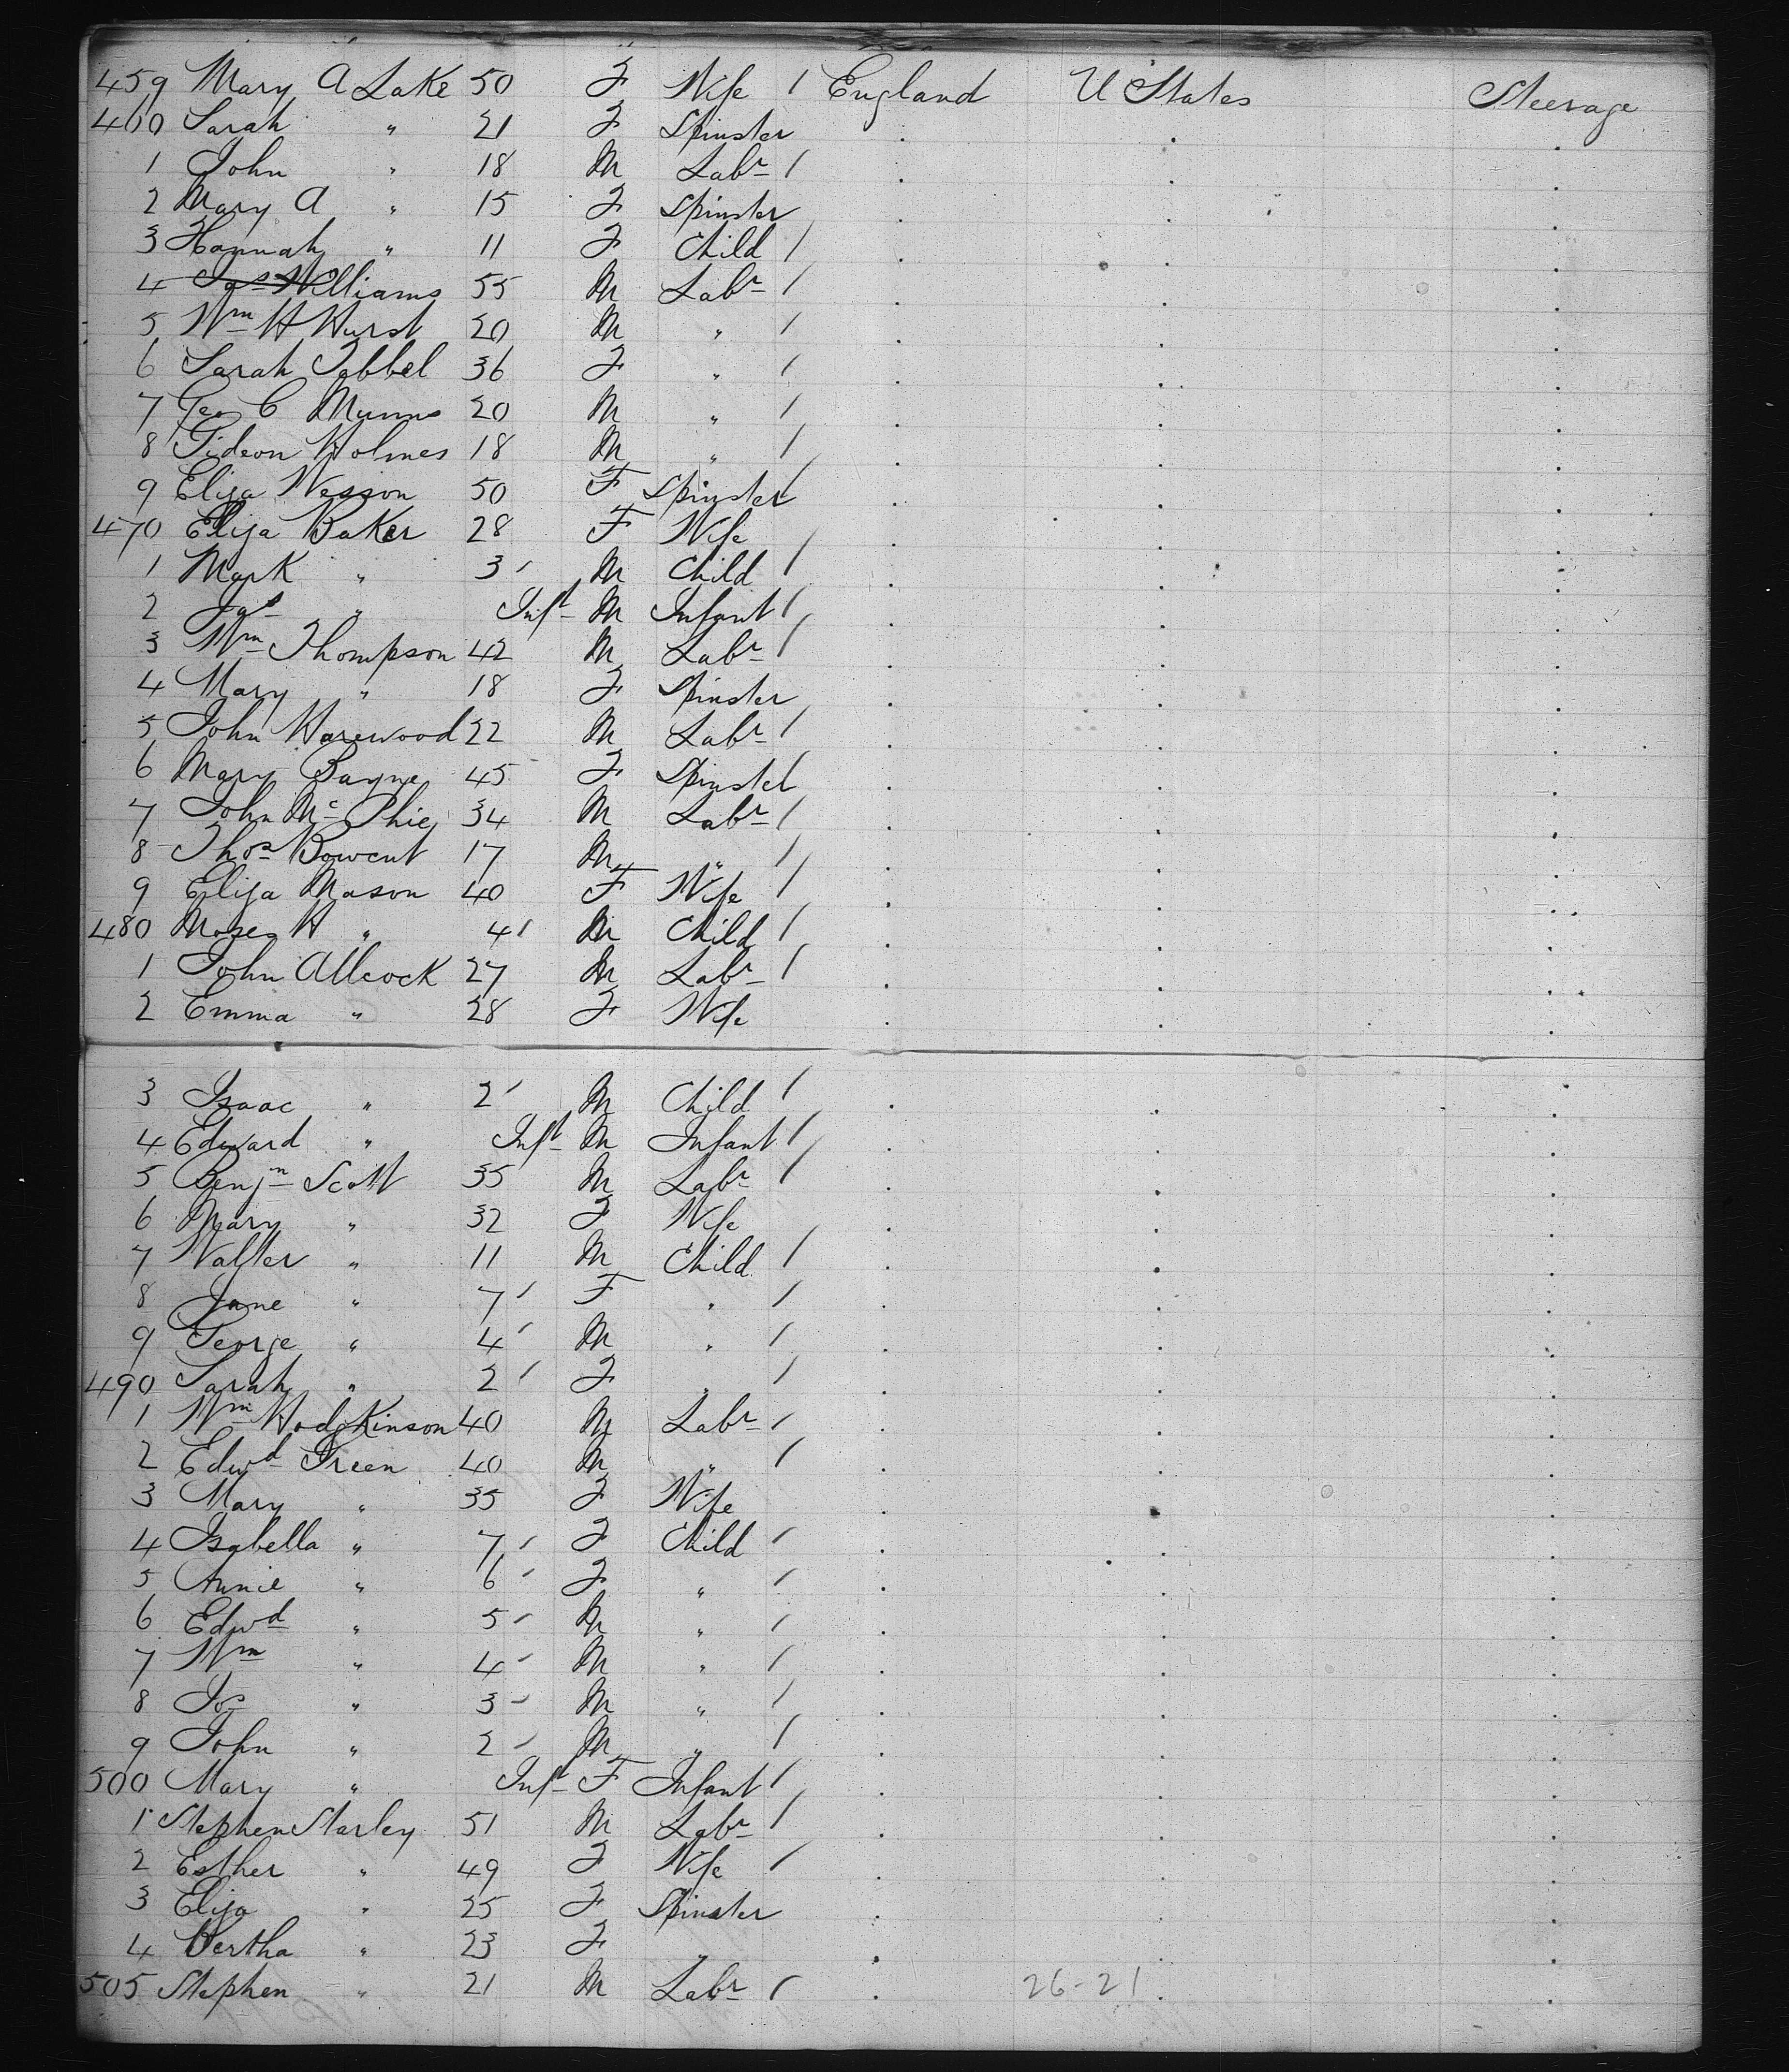 459 Mary A Lake 50 F Wife / England U States Steerage
460 Sarah " 21 F Spinster . . .
1 John " 18 M Labr / . . .
2 Mary A " 15 F Spinster . . .
3 Hannah " 11 F Child / . . .
4 Jas Williams 55 M Labr / . . .
5 Wm H Hurst 20 M " / . . .
6 Sarah Tabbel 36 F " / . . .
7 Geo C Munns 20 M " / . . .
8 Gideon Holmes 18 M " / . . .
9 Eliza Wesson 50 F Spinster / . . .
470 Eliza Baker 28 F Wife . . .
1 Mark " 3 / M Child / . . .
2 Jas " Inft M Infant / . . .
3 Wm Thompson 42 M Labr / . . .
4 Mary " 18 F Spinster . . .
5 John Harewood 22 M Labr / . . .
6 Mary Bayne 45 F Spinster / . . .
7 John Mc Phie 34 M Labr / . . .
8 Thos Bowcut 17 M " / . . .
9 Eliza Mason 40 F Wife / . . .
480 Moses H " 4 / M Child / . . .
1 John Allcock 27 M Labr / . . .
2 Emma " 28 F Wife . . .
3 Isaac " 2 / M Child / . . .
4 Edward " Inft M Infant / . . .
5 Benjn Scott 35 M Labr / . . .
6 Mary " 32 F Wife . . .
7 Walter " 11 M Child / . . .
8 Jane " 7 / F " / . . .
9 George " 4 / M " / . . .
490 Sarah " 2 / F " / . . .
1 Wm Hodgkinson 40 M Labr / . . .
2 Edwd Green 40 M " / . . .
3 Mary " 35 F Wife . . .
4 Isabella " 7 / F Child / . . .
5 Annie " 6 / F " / . . .
6 Edwd " 5 / M " / . . .
7 Wm " 4 / M " / . . .
8 Jos " 3 / M " / . . .
9 John " 2 / M " / . . .
500 Mary " Inft F Infant / . . .
1 Stephen Starley 51 M Labr / . . .
2 Esther " 49 F Wife / . . .
3 Eliza " 25 F Spinster . . .
4 Bertha " 23 F " . . .
505 Stephen " 21 M Labr / . 26-21 . .